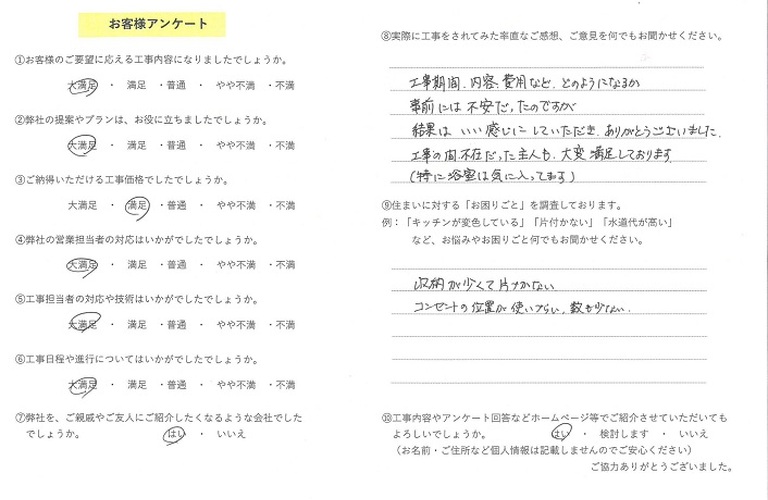 お客様アンケート
①お客様のご要望に応える工事内容になりましたでしょうか。
大満足 ・ 満足 ・普通 ・ やや不満 ・不満
②弊社の提案やプランは、お役に立ちましたでしょうか。
大満足 ・ 満足 ・普通 ・ やや不満 ・不満
③ご納得いただける工事価格でしたでしょうか。
大満足 ・ 満足 ・普通 ・ やや不満 ・不満
④弊社の営業担当者の対応はいかがでしたでしょうか。
大満足 ・ 満足 ・普通 ・ やや不満 ・不満
⑤工事担当者の対応や技術はいかがでしたでしょうか。
大満足 ・ 満足 ・普通 ・ やや不満 ・不満
⑥工事日程や進行についてはいかがでしたでしょうか。
大満足 ・ 満足 ・普通 ・ やや不満 ・不満
⑦弊社を、ご親戚やご友人にご紹介したくなるような会社でした
でしょうか。 はい ・ いいえ
⑧実際に工事をされてみた率直なご感想、ご意見を何でもお聞かせください。
工事期間、内容、費用など、どのようになるか
事前には不安だったのですが
結果はいい感じにしていただき、ありがとうございました。
工事の間不在だった主人も、大変満足しております
(特に浴室は気に入ってます)
⑨住まいに対する「お困りごと」を調査しております。
例：「キッチンが変色している」「片付かない」「水道代が高い」
など、お悩みやお困りごと何でもお聞かせください。
収納が少くて片づかない
コンセントの位置が使いづらい、数も少ない。
⑩工事内容やアンケート回答などホームページ等でご紹介させていただいても
よろしいでしょうか。 はい ・ 検討します ・ いいえ
（お名前・ご住所など個人情報は記載しませんのでご安心ください）
ご協力ありがとうございました。